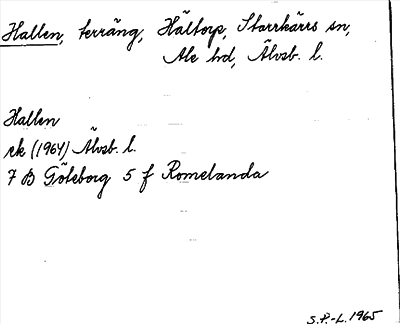 Hallen, terräng, Hältorp, Starrkärrs sn,
Ale hd, Älvsb. l.
Hallen
ek (1964) Älvsb. l.
7 B Göteborg 5 f Romelanda
S.P.-L. 1965